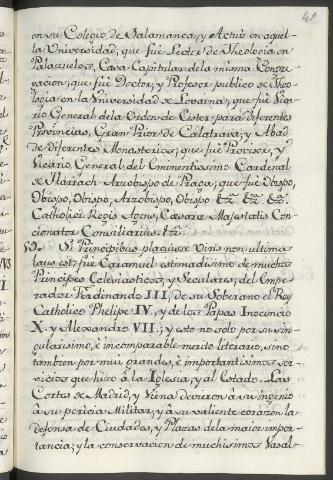 41
en su Colegio de Salamanca, y Actuó en aquel-
la Universidad; que fué Lector de Theologia en
Palazuelos, Casa Capitular de la misma Congre-
gacion; que fue Doctor, y Profesor publico de Theo-
logia en la Universidad de Lovaina; que fue Vica-
rio General de la Orden de Cister para diferentes
Provincias, Gran Prior de Calatrava, y Abad
de diferentes Monasterios; que fue Provisor, y
Vicario General del Eminentissimo Cardinal
de Harrach Arzobispo de Praga; que fue Obispo,
Obispo, Obispo, Arzobispo, Obispo &c. &c. &c.
Catholici Regis Agens, Cæsareæ Majestatis Con-
cionator Consiliarius &c.
59. Si Principibus placuisse Viris non ultima
laus est: fué Caramuel estimadisimo de muchos
Principes Eclesiasticos, y Seculares; del Empe-
rador Ferdinando III, de su Soberano el Rey
Catholico Phelipe IV, y de los Papas Inocencio
X. y Alexandro VII.; y esto no solo por su sin-
gularisimo, è incomparable merito literario, sino
tambien por mui grandes, è importantisimos ser-
vicios que hizo à la Iglesia, y al Estado. Las
Cortes de Madrid, y Viena devieron à su ingenio
à su pericia Militar, y à su valiente corazon la
defensa de Ciudades, y Plazas de la maior impor-
tancia; y la conservacion de muchisimos Vasal-